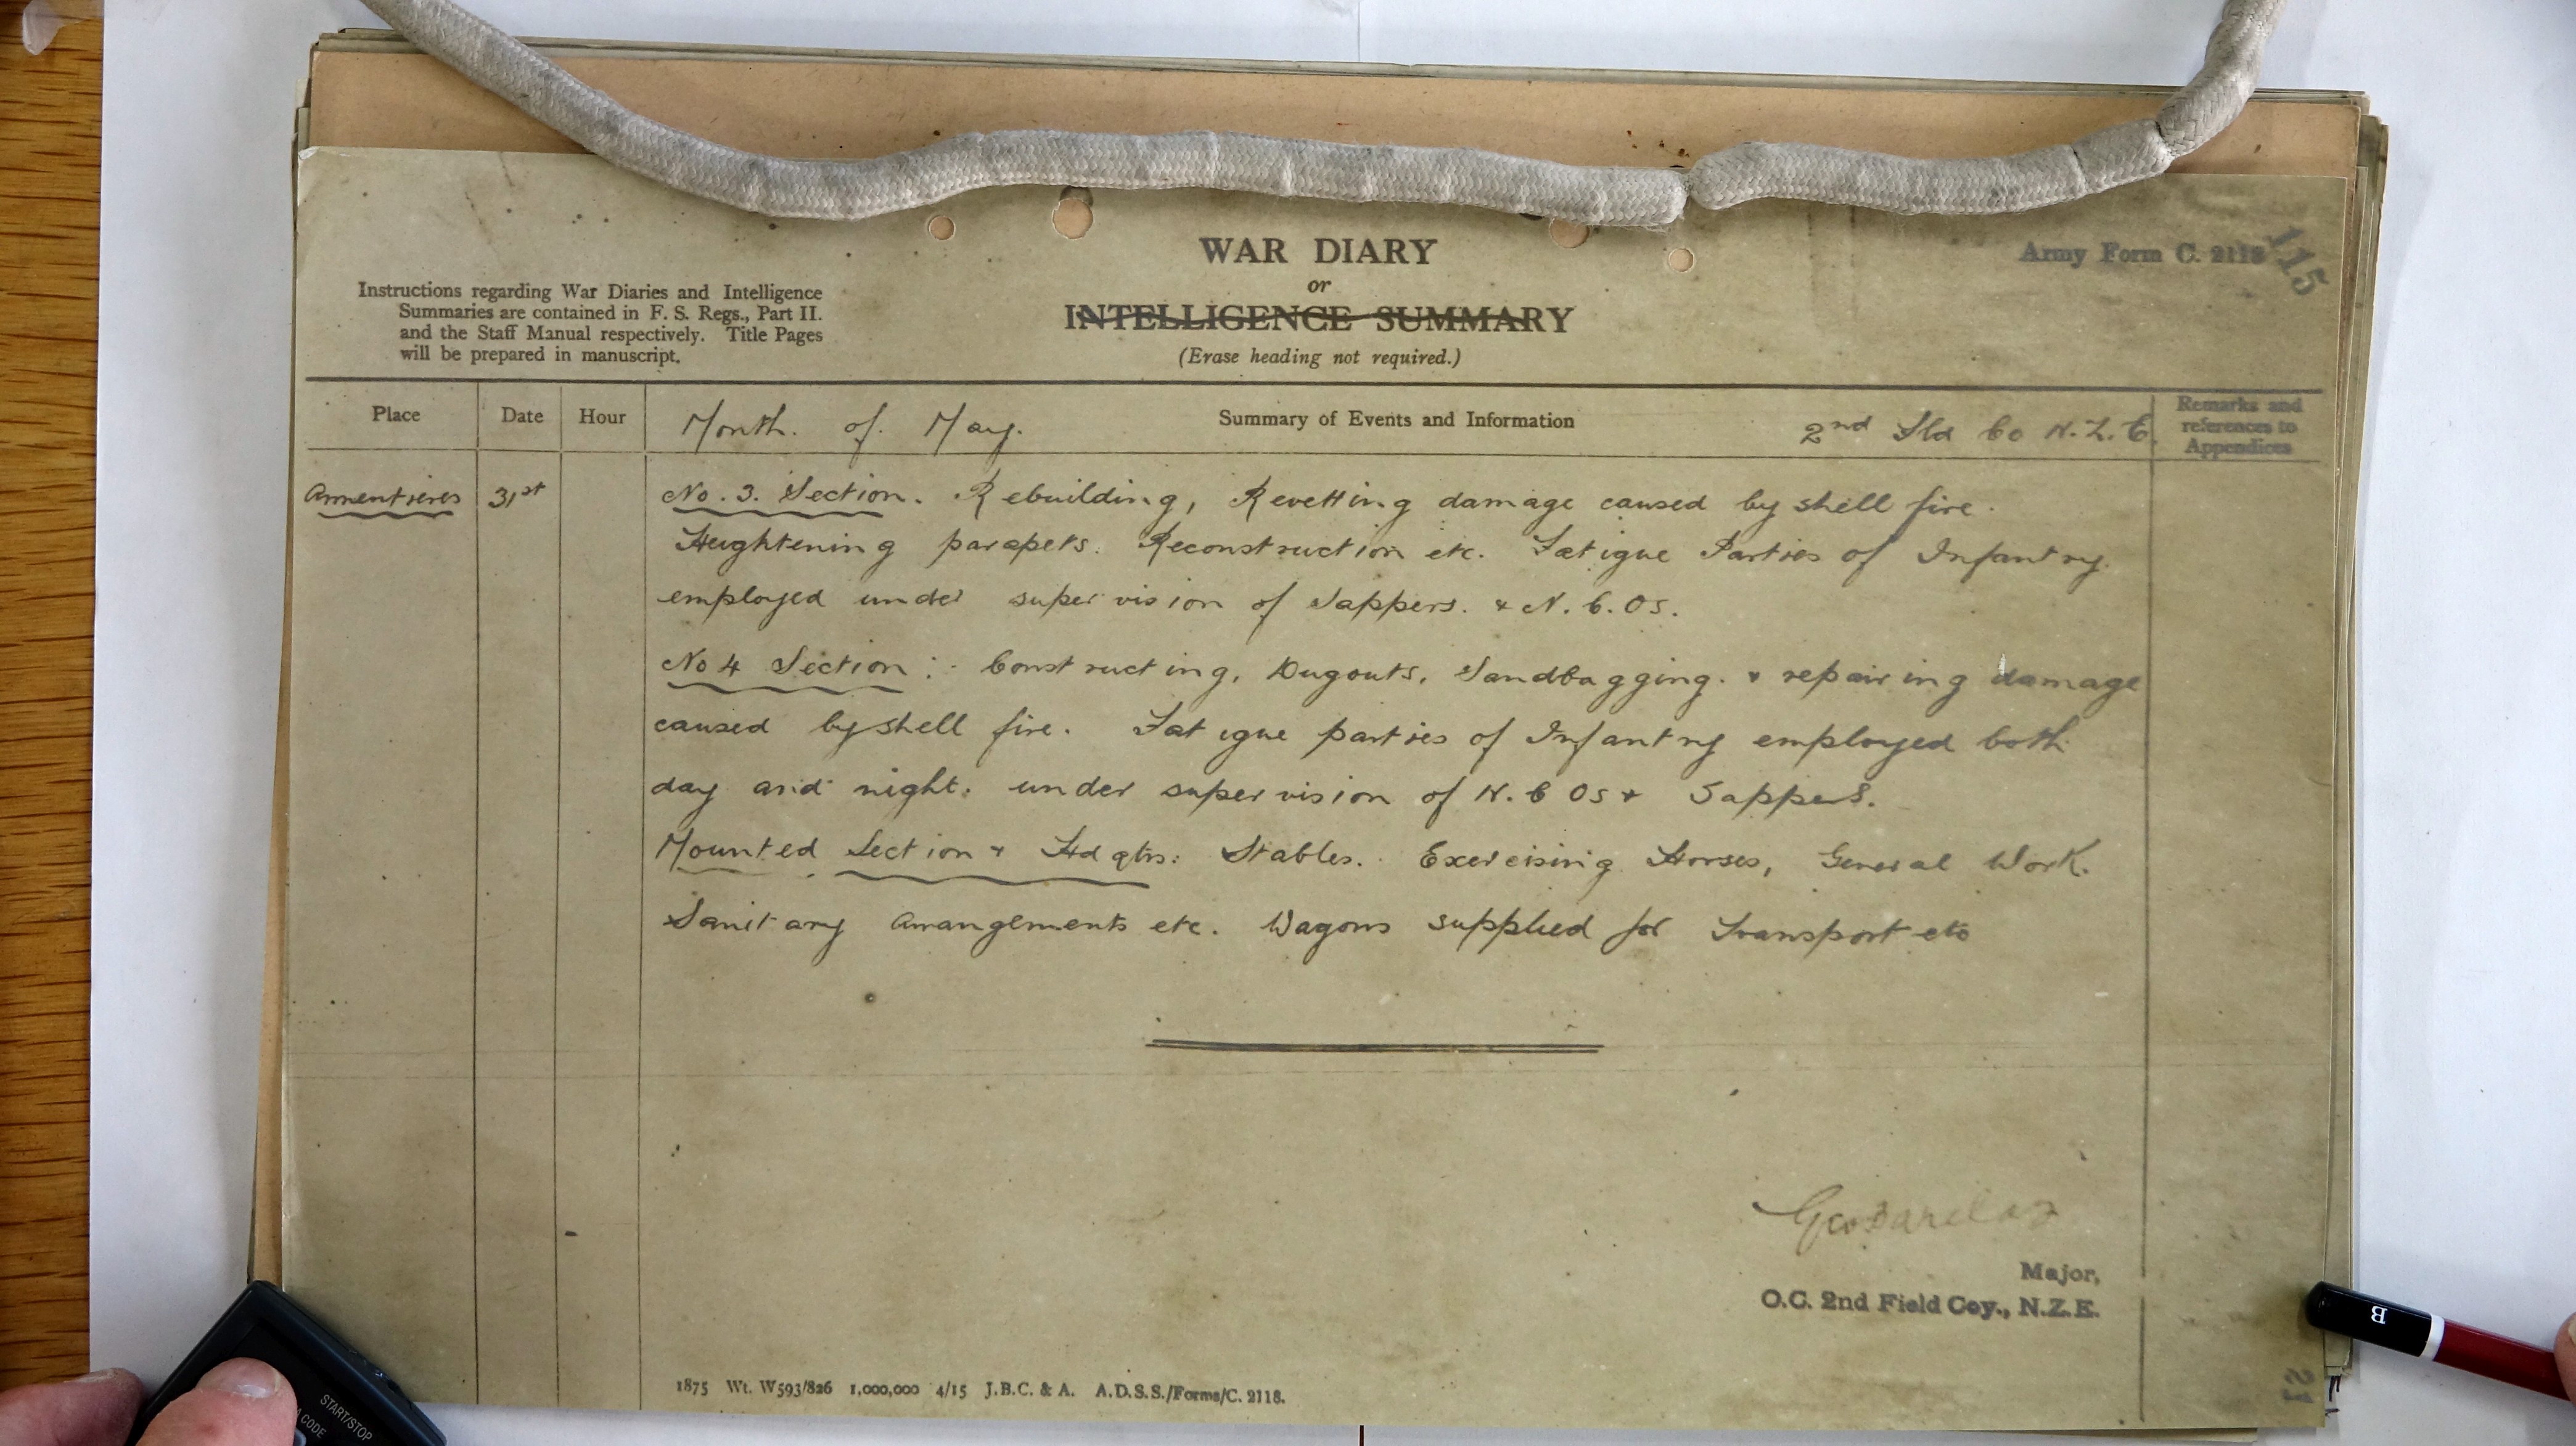 WAR DIARY
or
INTELLIGENCE SUMMARY
(Erase heading not required.)
Army Form C. 2118
115
Instructions regarding War Diaries and Intelligence
Summaries are contained in F. S. Regs., Part II.
and the Staff Manual respectively. Title Pages
will be prepared in manuscript.
Place
Date
Hour
Month. of. May.
Summary of Events and Information
2nd Fld Co N.Z.E.
Remarks and
references to
Appendices
Armentieres
31st
No. 3. Section. Rebuilding, Revetting damage caused by shell fire.
Heightening parapets. Reconstruction etc. Fatigue Parties of Infantry.
employed under supervision of Sappers. & N.C.Os.
No 4 Section :- Constructing, Dugouts, Sandbagging. & repairing damage
caused by shell fire. Fatigue parties of Infantry employed both
day and night. under supervision of N.C Os & Sappers.
Mounted Section & Hdqtrs: Stables. Exercising Horses, General Work.
Sanitary Arrangements etc. Wagons supplied for Transport etc
Major,
O.C. 2nd Field Coy., N.Z.E.
1875 Wt. W593/826 1,000,000 4/15 J.B.C. & A. A.D.S.S./Forms/C. 2118.
START/STOP
A CODE
B